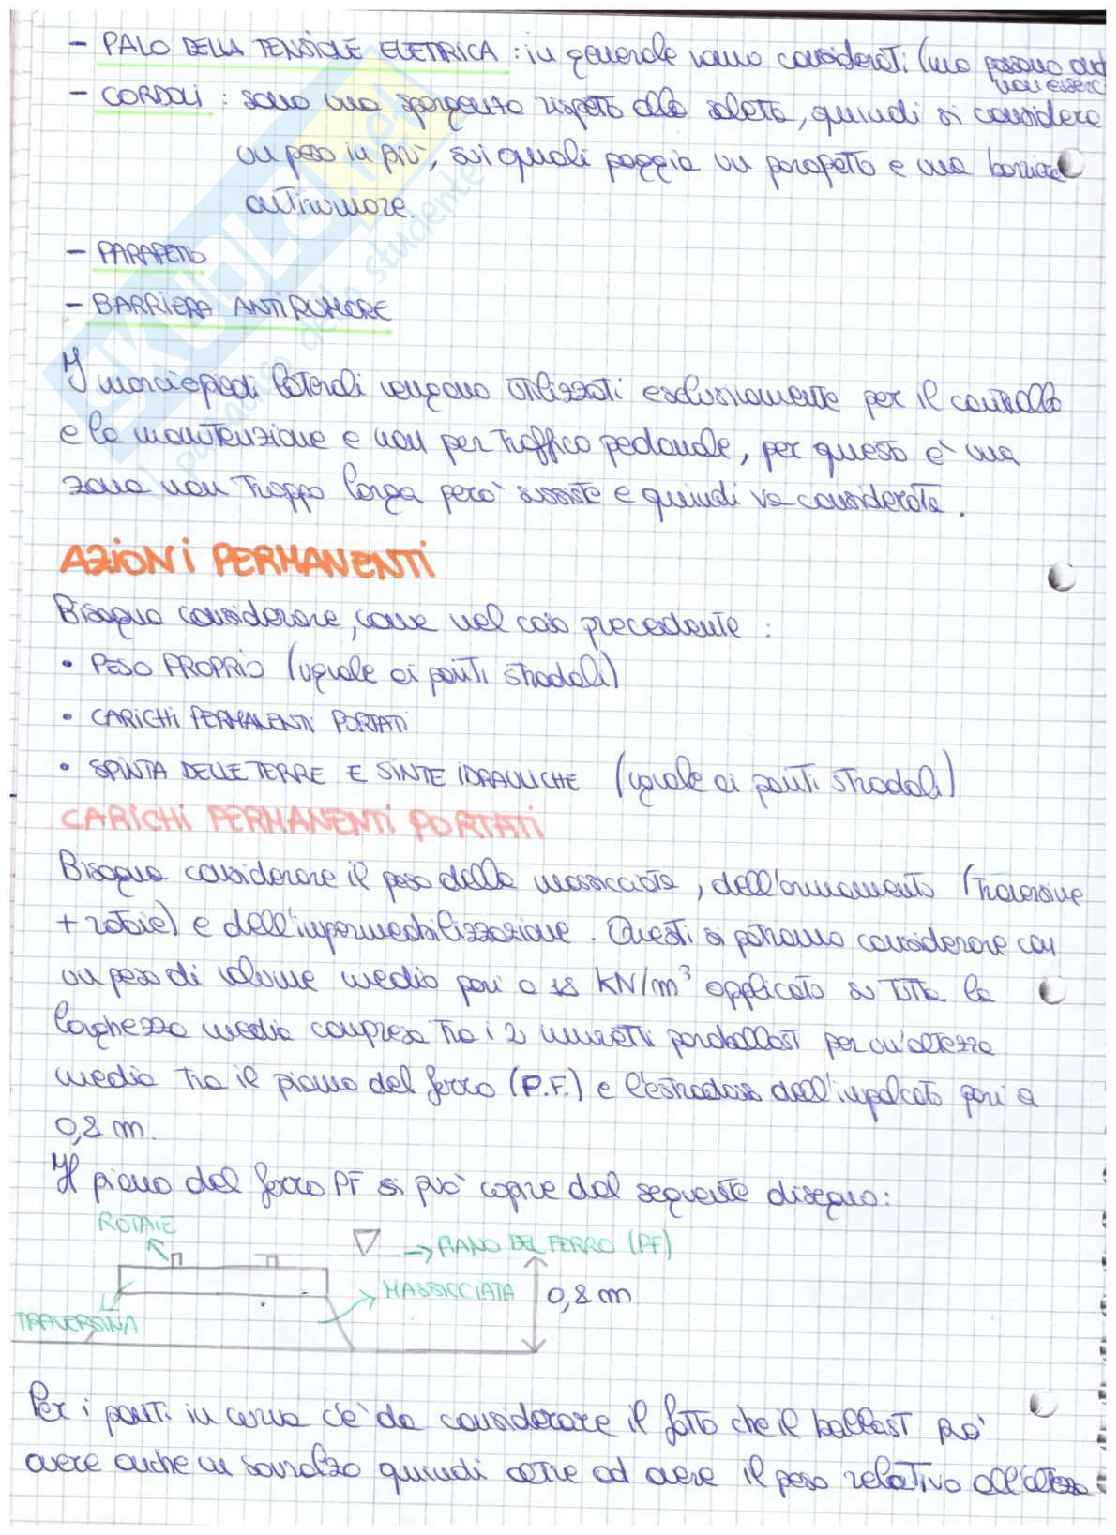 - PALO DELLA TENSIONE ELETTRICA : in generale vanno considerati (ma possono anche
non esserci
- CORDOLI : sono una sporgenza rispetto alla soletta, quindi si considera
un peso in più, sui quali poggia un parapetto e una barriera
antirumore.
- PARAPETTO
- BARRIERA ANTIRUMORE
I marciapiedi laterali vengono utilizzati esclusivamente per il controllo
e la manutenzione e non per traffico pedonale, per questo è una
zona non troppo larga però sussiste e quindi va considerata.
AZIONI PERMANENTI
Bisogna considerare, come nel caso precedente :
• PESO PROPRIO (uguale ai ponti stradali)
• CARICHI PERMANENTI PORTATI
• SPINTA DELLE TERRE E SPINTE IDRAULICHE (uguale ai ponti stradali)
CARICHI PERMANENTI PORTATI
Bisogna considerare il peso della massicciata, dell'armamento (traversine
+ rotaie) e dell'impermeabilizzazione. Questi si potranno considerare con
un peso di volume medio pari a 18 KN/m³ applicato su tutta la
larghezza media compresa tra i 2 muretti paraballast per un'altezza
media tra il piano del ferro (P.F.) e l'estradosso dell'impalcato pari a
0,8 m.
Il piano del ferro PF si può capire dal seguente disegno:
ROTAIE
→ PIANO DEL FERRO (PF)
MASSICCIATA 0,8 m
TRAVERSINA
Per i ponti in curva c'è da considerare il fatto che il ballast può
avere anche un sovralzo quindi oltre ad avere il peso relativo all'altezza